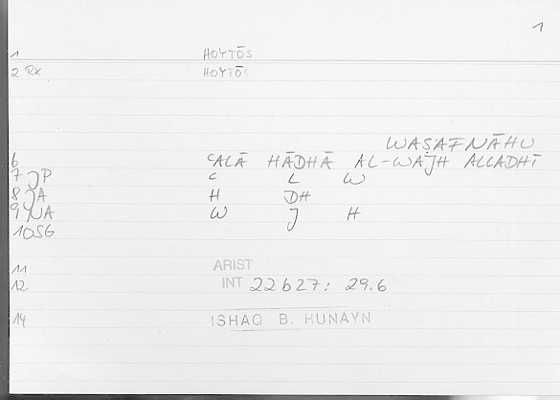 1
1 HOYTŌS
2 RX HOYTŌS
WAṢAFNĀHU
6 ʿALĀ HĀDHĀ AL-WAJH ALLADHĪ
7 JP ʿ L W
8 JA H DH
9 NA W J H
10 SG
11 ARIST
12 INT 22b27: 29.6
14 ISHAQ B. HUNAYN